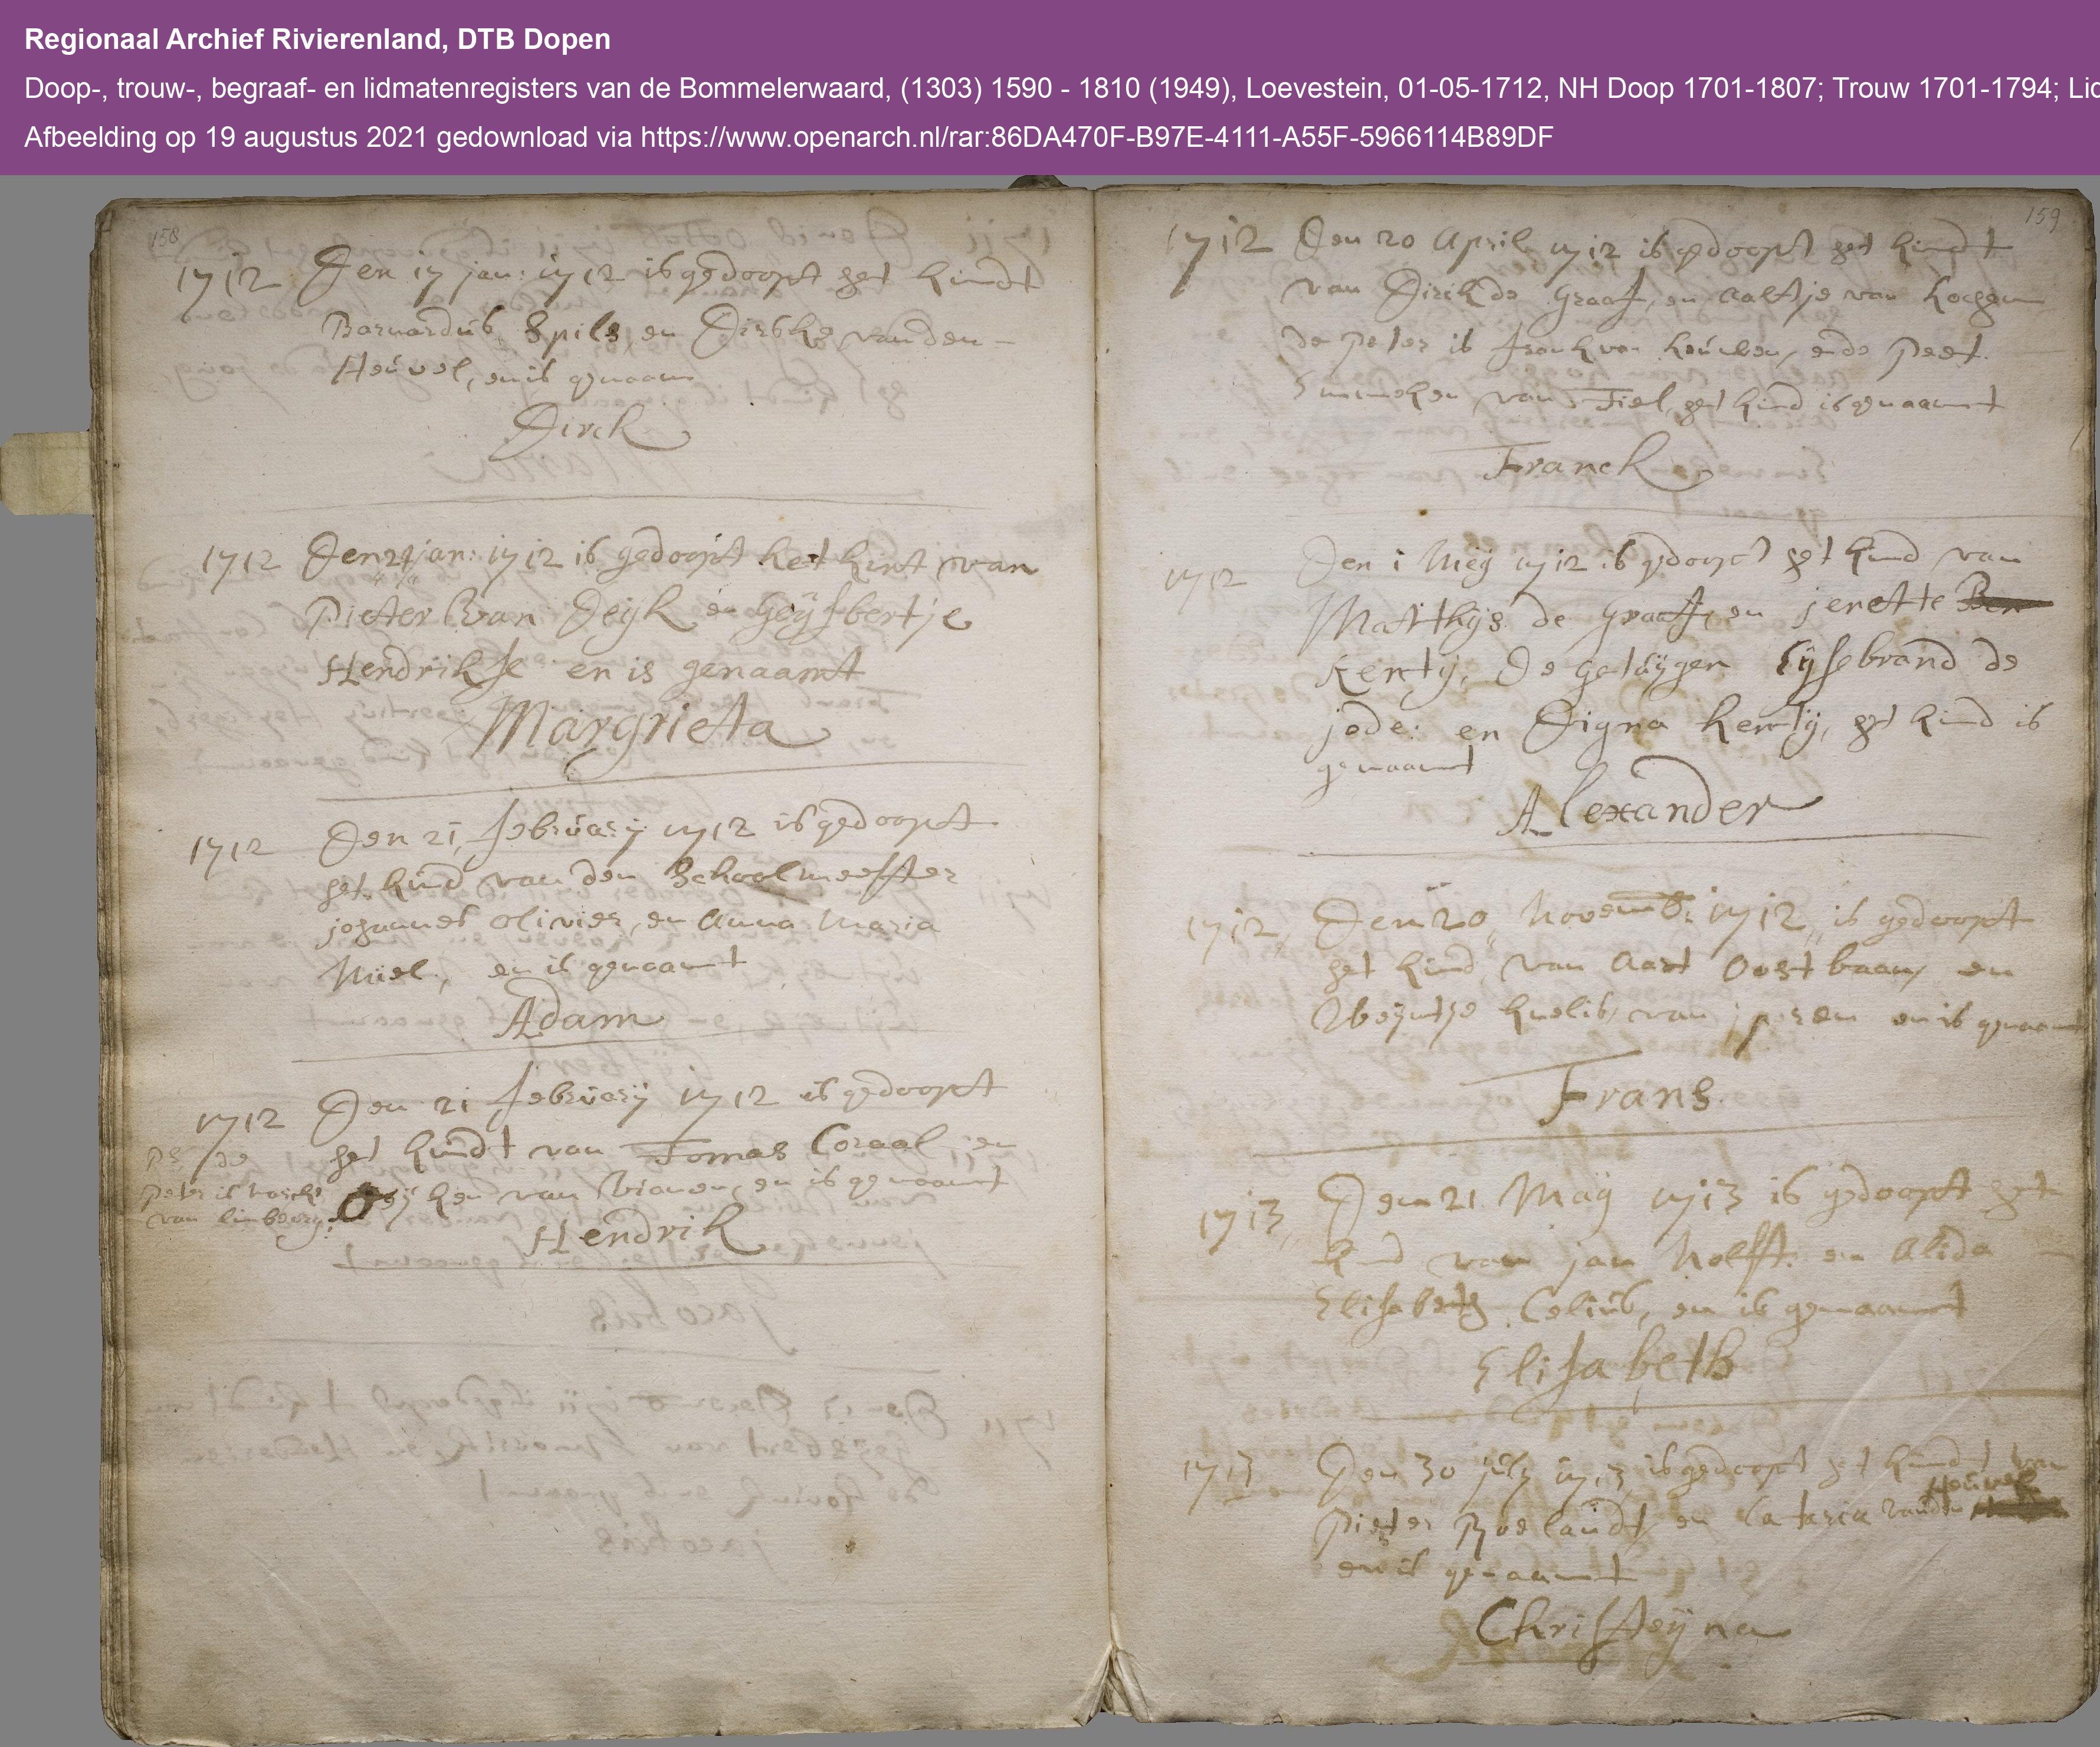 Regionaal Archief Rivierenland, DTB Dopen
Doop-, trouw-, begraaf- en lidmatenregisters van de Bommelerwaard, (1303) 1590 - 1810 (1949), Loevestein, 01-05-1712, NH Doop 1701-1807; Trouw 1701-1794; Lid
Afbeelding op 19 augustus 2021 gedownload via https://www.openarch.nl/rar:86DA470F-B97E-4111-A55F-5966114B89DF
158
1712 Den 17 jan: 1712 is gedoopt het kindt
Barnardus Spils, en Dirske vanden-
Heuvel, en is genaam
Dirck
1712 Den 24 jan: 1712 is gedoopt het kint van
Pieter Van Deyk en Geysbertje
Hendrikse en is genaamt
Margrieta
1712 Den 21, february 1712 is gedoopt
het kind van den Schoolmeester
johannes olivier, en Anna Maria
Muel, en is genaamt
Adam
1712 Den 21 february 1712 is gedoopt
het kindt van Tomas Coraal, en
ken van Vianen, en is genaamt
Hendrik
PS de
Peter is
van limborg:
159
1712 Den 20 April 1712 is gedoopt het kindt
van Dirik de Graaf, en Aaltje van
De Peter is frank van, ende Peet
van Tiel, het kind is genaamt
Franck
1712 Den 1 Mey 1712 is gedoopt het kind van
Matthys de Graaf, en jenette
Kenty, De getuygen Eysebrand de
jode: en Digna Kenty, het kind is
genaamt
Alexander
1712, Den 20, Novemb: 1712, is gedoopt
het kind van Aart Oostbaan, en
van en is genaamt
Frans
1713, Den 21 May 1713 is gedoopt het
kind van jan Nolfft: en Alida
Elisabeth Celius, en is genaamt
Elisabeth
1713 Den 30 july 1713 is gedoopt het kindt van
Heuvel
Pieter Roelandt, en Cataria vanden
en is genaamt
Christeyna